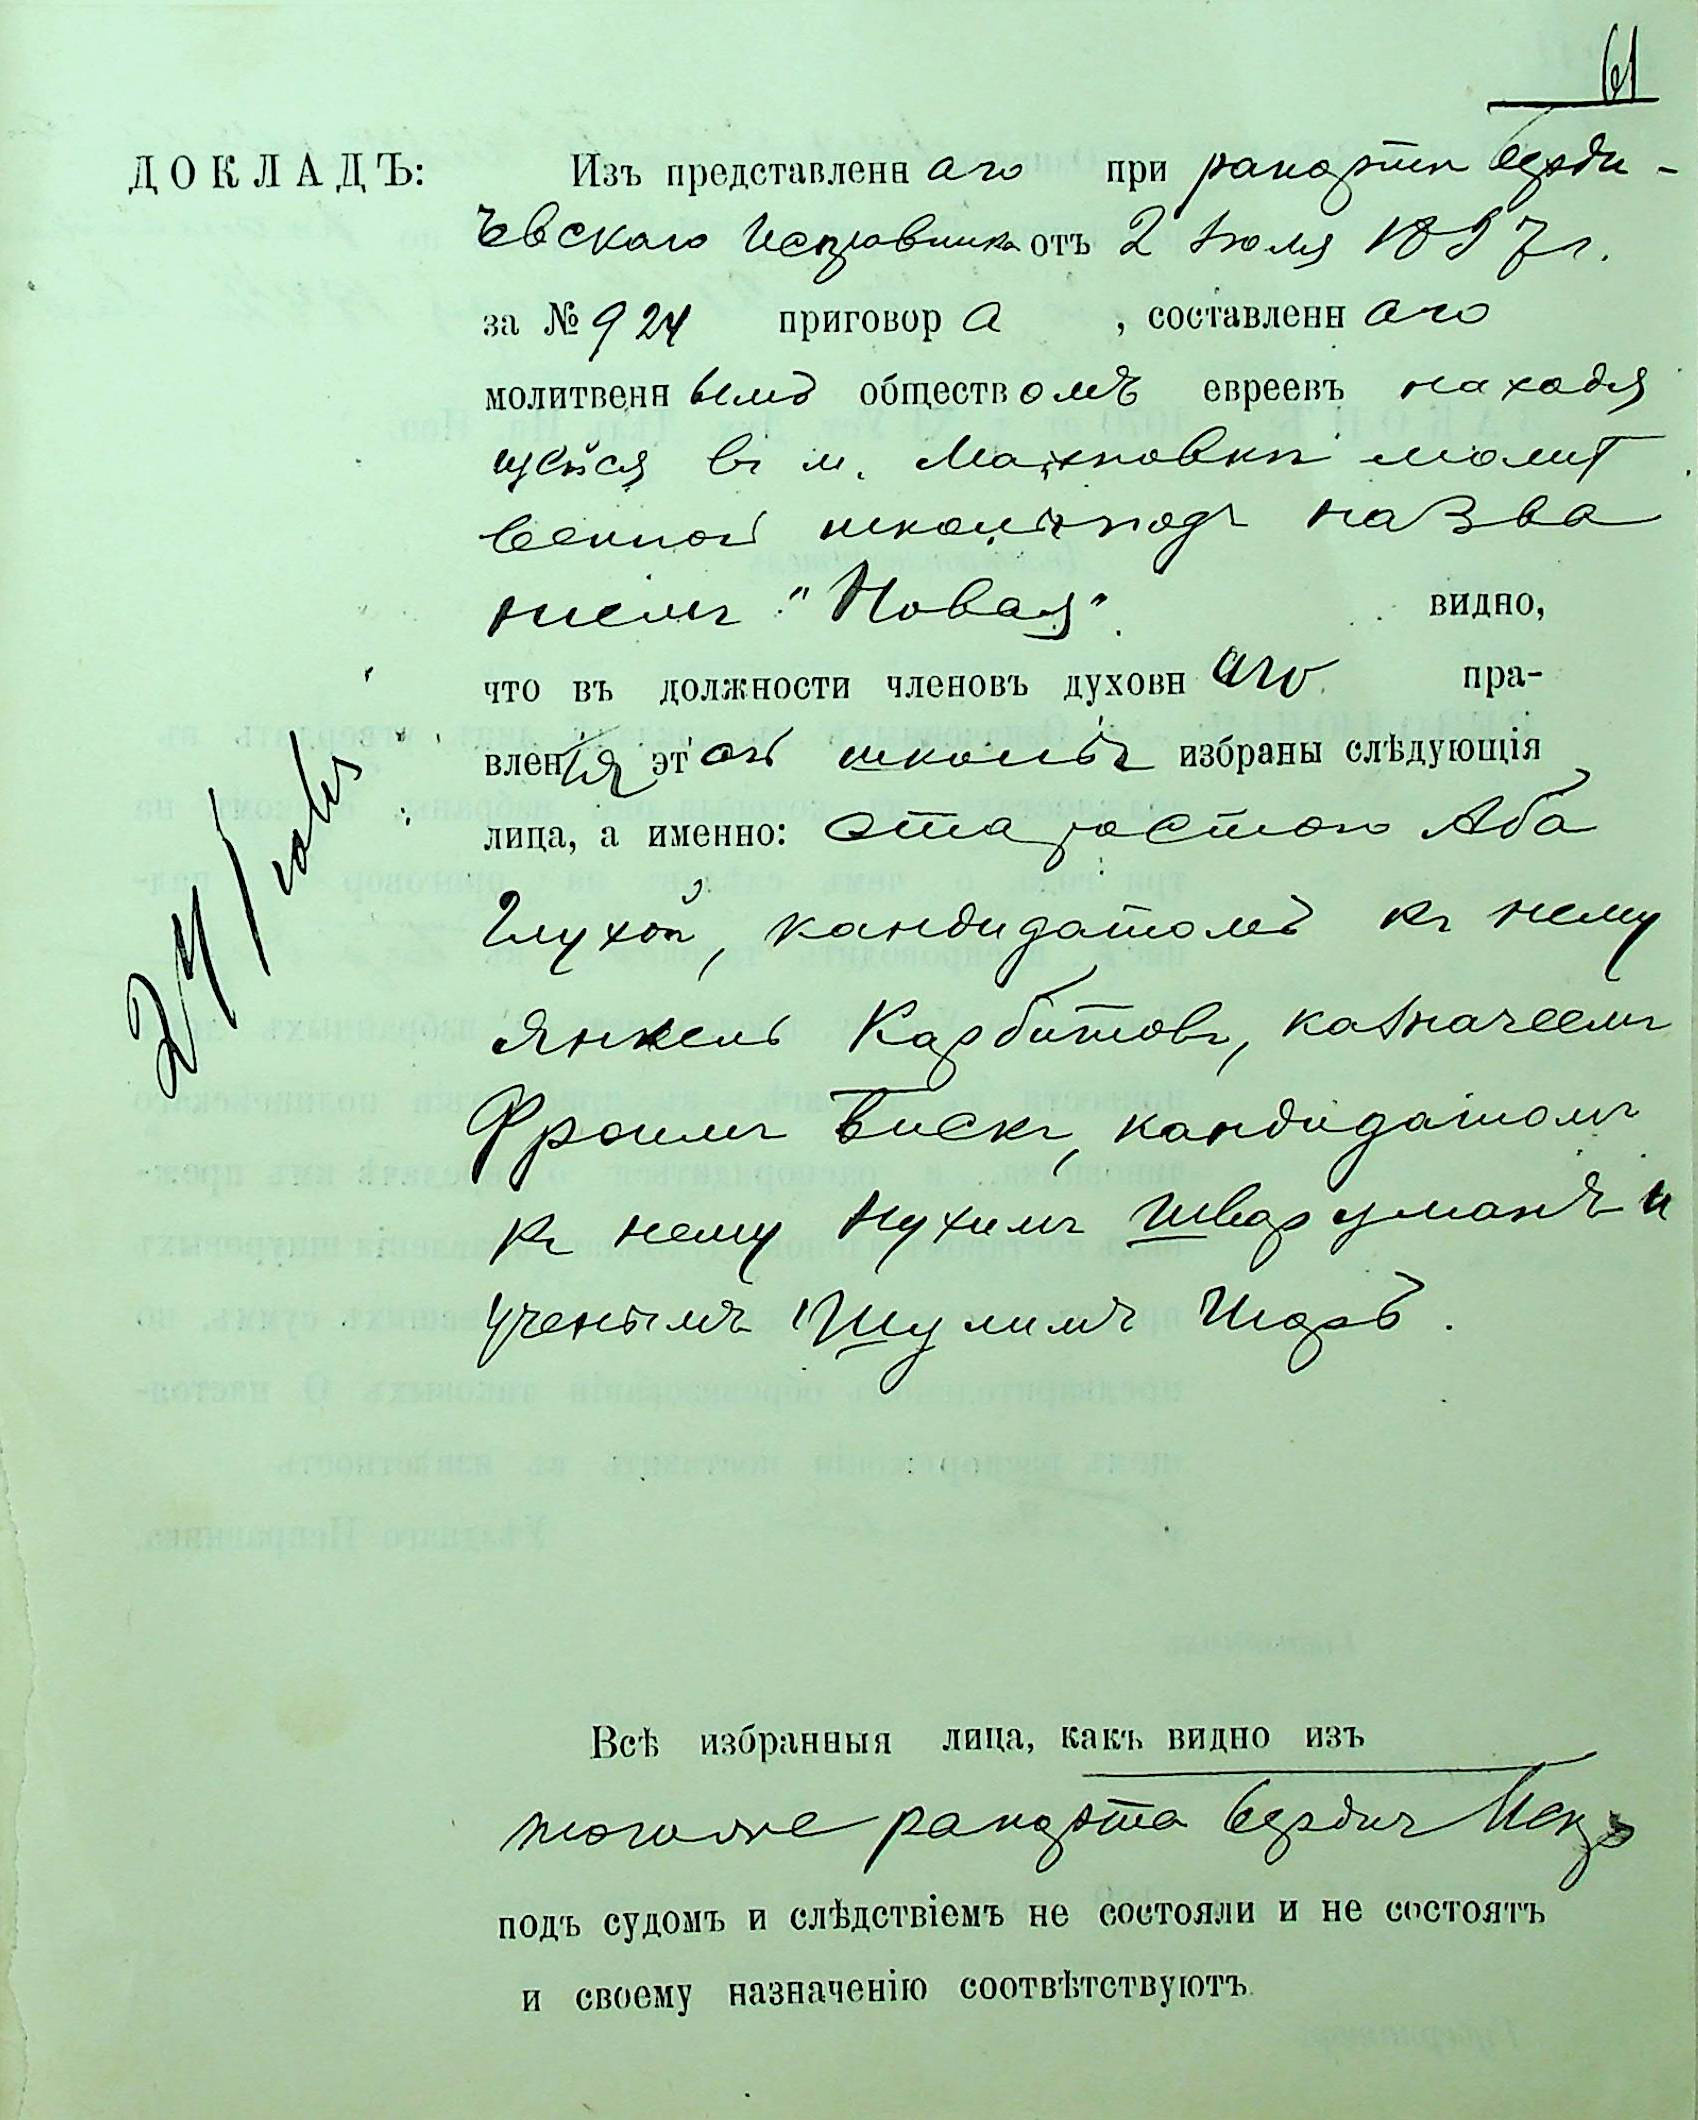 61
ДОКЛАДЪ: Изъ представленнаго при рапортѣ Берди-
чевскаго Исправника отъ 2 Іюля 1897 г.
за № 924 приговора, составленнаго
молитвеннымъ обществомъ евреевъ находя
щейся въ м. Махновкѣ молит
венной школы подъ назва
ніемъ "Новая" видно,
что въ должности членовъ духовнаго пра-
вленія этой школы избраны слѣдующія
лица, а именно: старостою Аба
Глухой, кандидатомъ къ нему
Янкель Карбитовъ, казначеемъ
Фроимъ Вискъ, кандидатомъ
къ нему Нухимъ Шварцманъ и
ученымъ Шулимъ Шоръ.
24 Іюля
Всѣ избранныя лица, какъ видно изъ
того же рапорта Бердич Испр
подъ судомъ и слѣдствіемъ не состояли и не состоятъ
и своему назначенію соотвѣтствуютъ